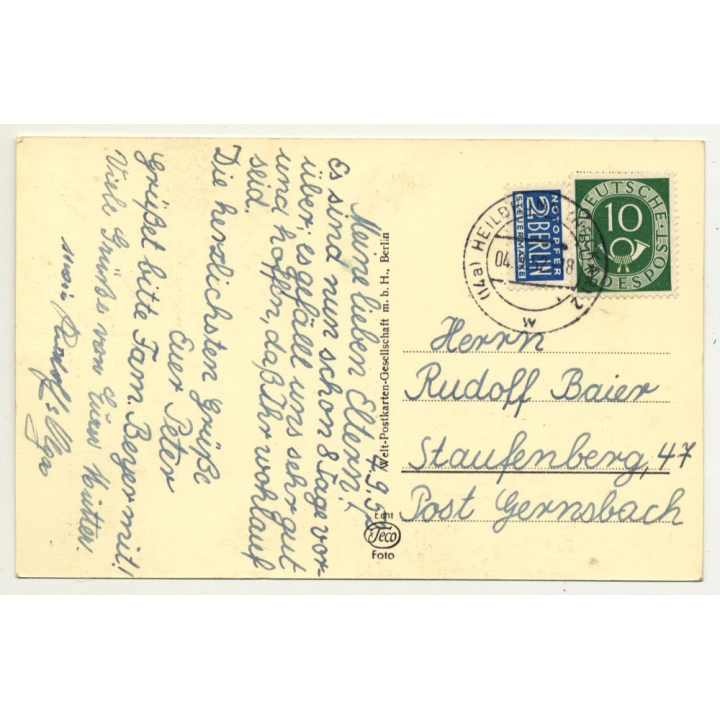 4.9.5
Meine lieben Eltern!
Es sind nun schon 8 Tage vor-
über, es gefällt uns sehr gut
und hoffen, daß Ihr wohlauf
seid.
Die herzlichsten Grüße
Euer Peter
Grüßet bitte Fam. Beyer mit!
Viele Grüße von
Rudolf & Olga
Welt-Postkarten-Gesellschaft m. b. H., Berlin
Echt
Teco
Foto
(14a) HEILBR
04.
18
2
w
NOTOPFER
2 BERLIN
STEUERMARKE
DEUTSCHE
10
BUNDESPOST
Herrn
Rudolf Baier
Staufenberg, 47
Post Gernsbach